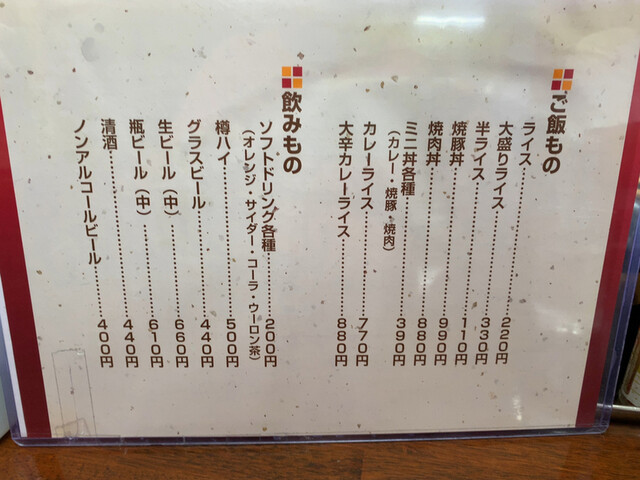 ご飯もの
ライス……………220円
大盛りライス……………330円
半ライス……………110円
焼豚丼……………990円
焼肉丼……………880円
ミニ丼各種……………390円
（カレー・焼豚・焼肉）
カレーライス……………770円
大辛カレーライス……………880円
飲みもの
ソフトドリンク各種……………200円
（オレンジ・サイダー・コーラ・ウーロン茶）
樽ハイ……………500円
グラスビール……………440円
生ビール（中）……………660円
瓶ビール（中）……………610円
清酒……………440円
ノンアルコールビール……………400円